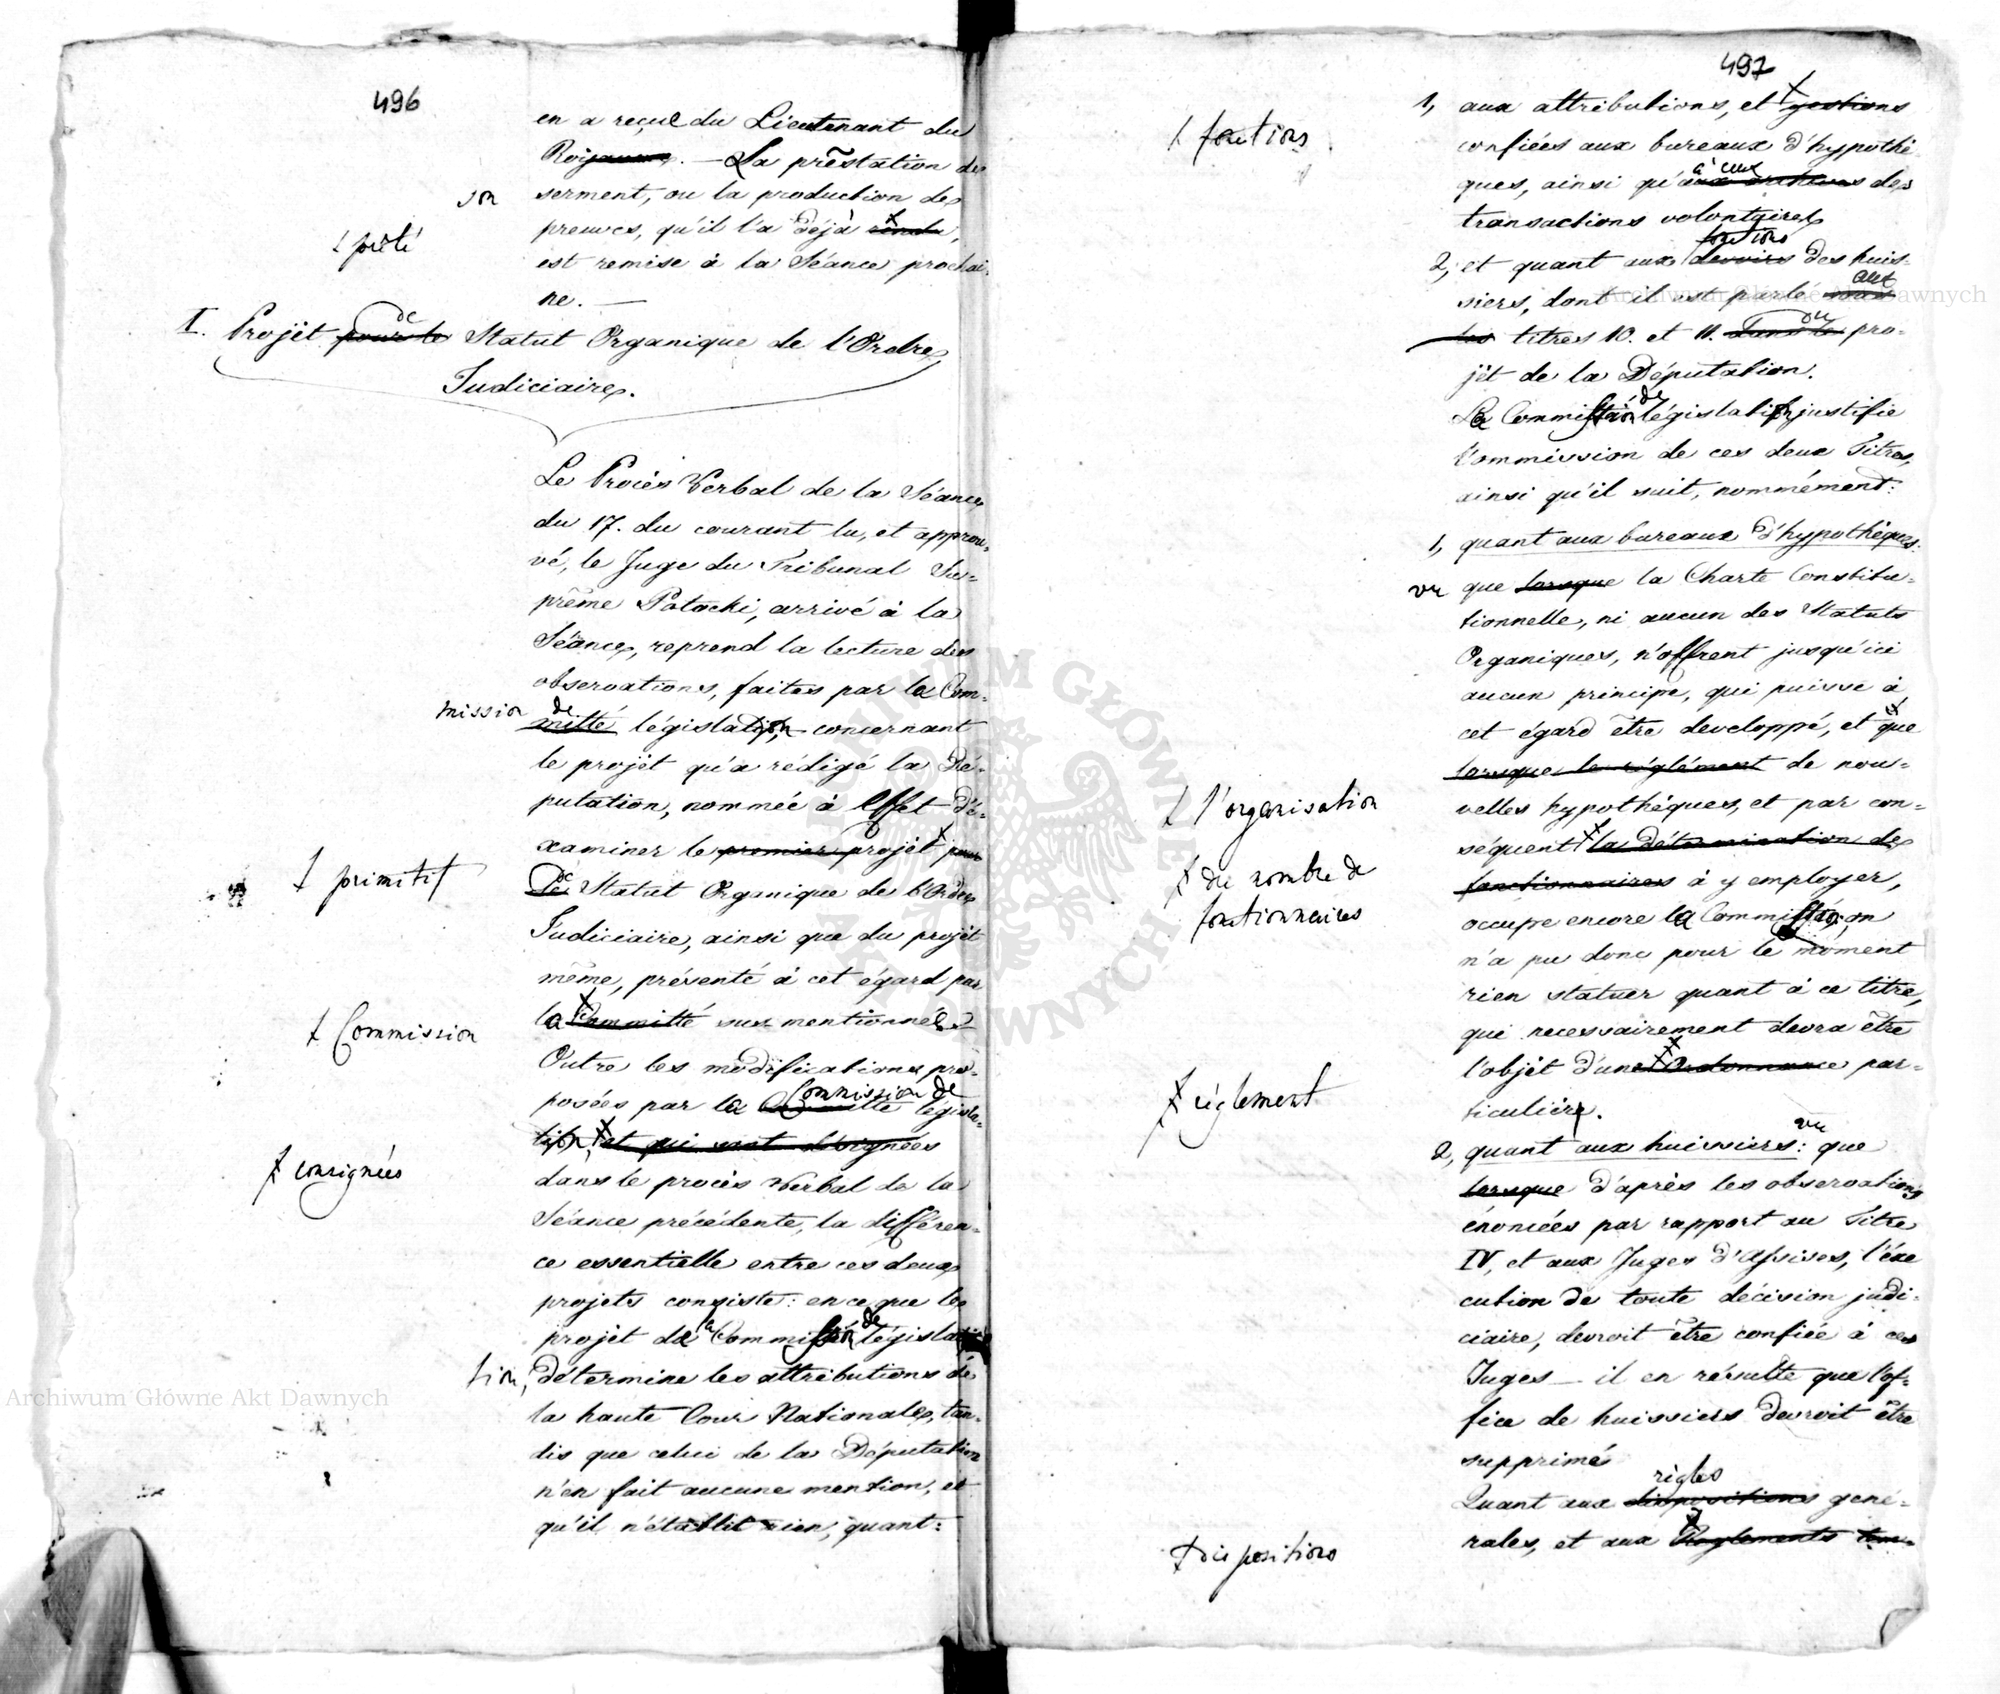 496
en a reçue du Lieutenant du
Royaume. — La prêstation de
son serment, ou la production des
preuves, qu'il l'a déjà rendu,
ł prêté
est remise à la Séance prochai-
ne. —
I. Projèt pour le de Statut Organique de l'Ordre
Judiciaire.
Le Procès Verbal de la Séance
du 17. du courant lu, et approu-
vé, le Juge du Tribunal Su-
prême Potocki, arrivé à la
Séance, reprend la lecture des
observations, faites par la Com-
mission mitté de législation, concernant
le projèt qu'a rédigé la Dé-
putation, nommée à effet d'é-
xaminer le premier projèt pour
ł primitif
Le de Statut Organique de l'Ordre
Judiciaire, ainsi que du projèt
même, présenté à cet égard par
la Committé sus mentionnée
ł Commission
Outre les modifications pro-
posées par la Committé Commission de législa-
tion, et qui sont désignées
ł consignées
dans le procès Verbal de la
Séance précédente, la différen-
ce essentielle entre ces deux
projèts consiste: en ce que le
projèt de la Commission de législa-
tion, détermine les attributions de
la haute Cour Nationale, tan-
dis que celui de la Députation
n'en fait aucune mention, et
qu'il n'établit rien, quant:
497
1, aux attributions, et gestions
ł fonctions
confiées aux bureaux d'hypothè
ques, ainsi qu'aux archives à ceux des
transactions volontaires
2, et quant aux devoirs fonctions des huis-
siers, dont il est parlé sous aux
les titres 10. et 11. dans le du pro-
jèt de la Députation.
La Commission de législation justifie
l'ommission de ces deux Titres,
ainsi qu'il suit, nommément:
1, quant aux bureaux d'hypothèques:
vu que lorsque la Charte Constitu-
tionnelle, ni aucun des Statuts
Organiques, n'offrent jusqu'ici
aucun principe, qui puisse à
cet égard être developpé, et que
lorsque le réglément de nou-
ł l'organisation
velles hypothèques, et par con-
séquent la détermination des
ł du nombre de
fonctionnaires
fonctionnaires à y employer,
occupe encore la Commission
n'a pu donc pour le moment
rien statuer quant à ce titre,
que necessairement devra être
l'objèt d'une Ordonnance par-
ł réglement
ticulière.
2, quant aux huissiers: vu que
lorsque d'après les observations
énoncées par rapport au Titre
IV, et aux Juges d'Assises, l'éxe
cution de toute décision judi-
ciaire, devroit être confiée à ces
Juges — il en résulte que l'of-
fice de huissiers devroit être
supprimé
Quant aux dispositions règles géné-
rales, et aux Réglements tem-
ł dispositions
Archiwum Główne Akt Dawnych
Archiwum Główne Akt Dawnych
ARCHIWUM GŁÓWNE AKT DAWNYCH